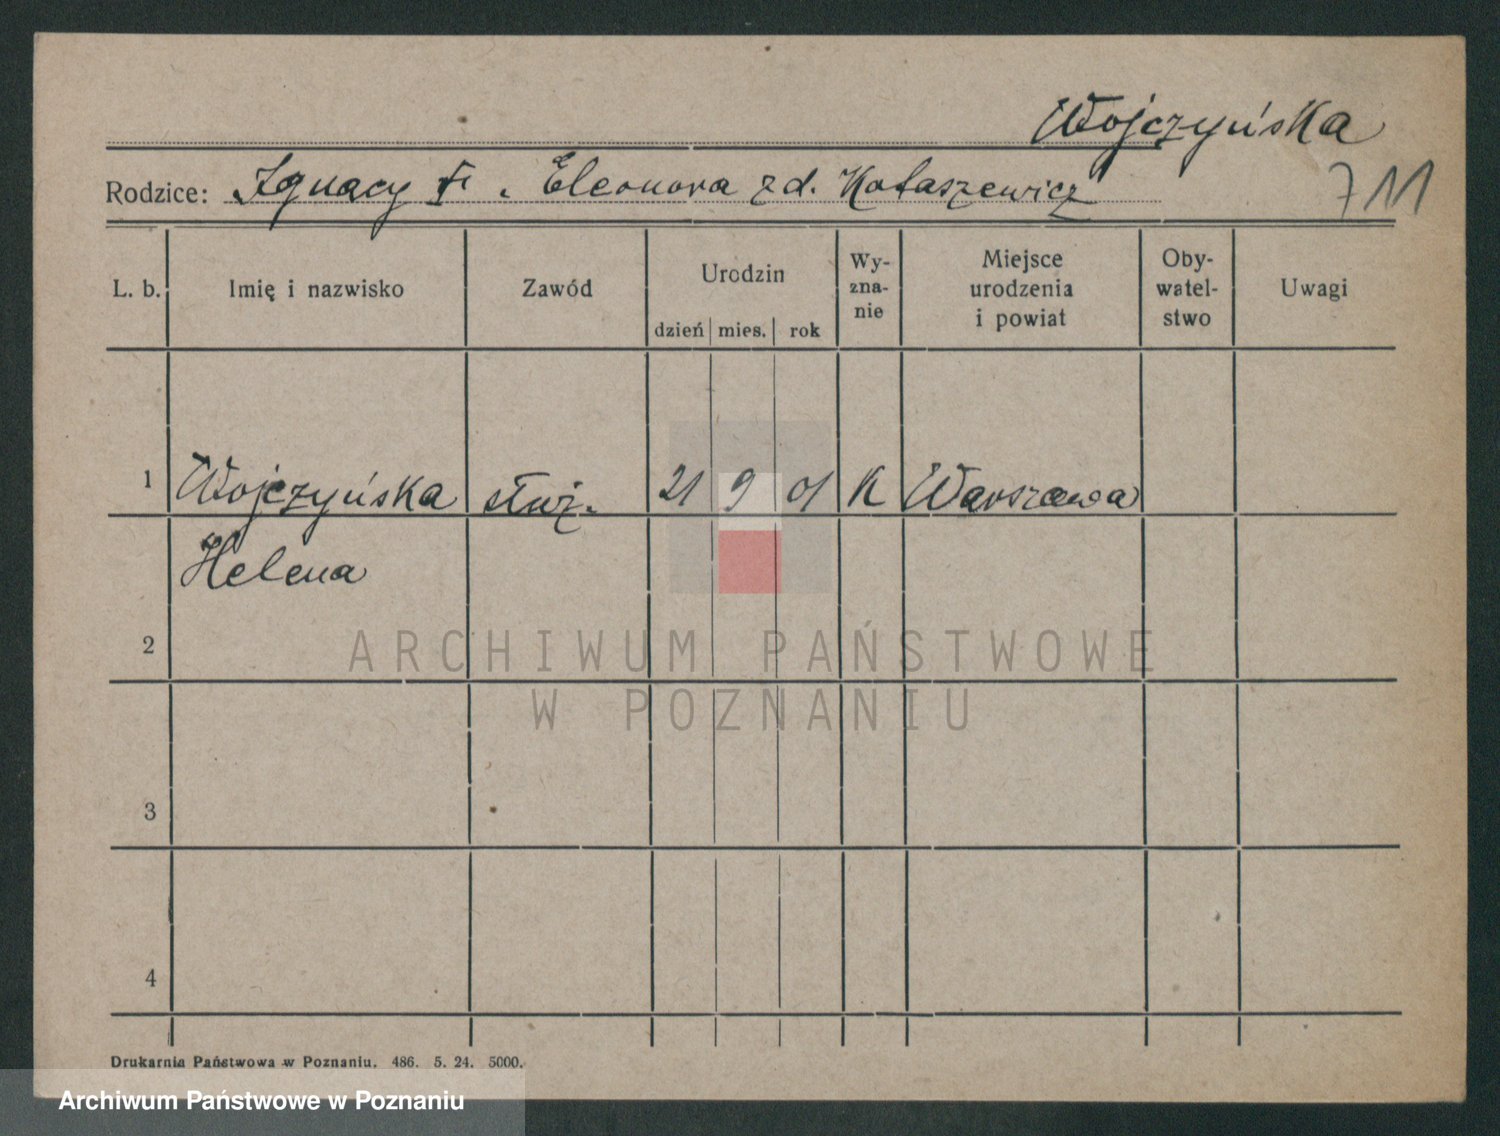 Wojczyńska
Rodzice: Ignacy †. Eleonora zd. Kotaszewicz
711
L. b. Imię i nazwisko Zawód Urodzin dzień mies. rok Wy-
zna-
nie Miejsce
urodzenia
i powiat Oby-
watel-
stwo Uwagi
1 Wojczyńska służ. 21 9 01 K Warszawa
Helena
2
ARCHIWUM PAŃSTWOWE
W POZNANIU
3
4
Drukarnia Państwowa w Poznaniu. 486. 5. 24. 5000.
Archiwum Państwowe w Poznaniu